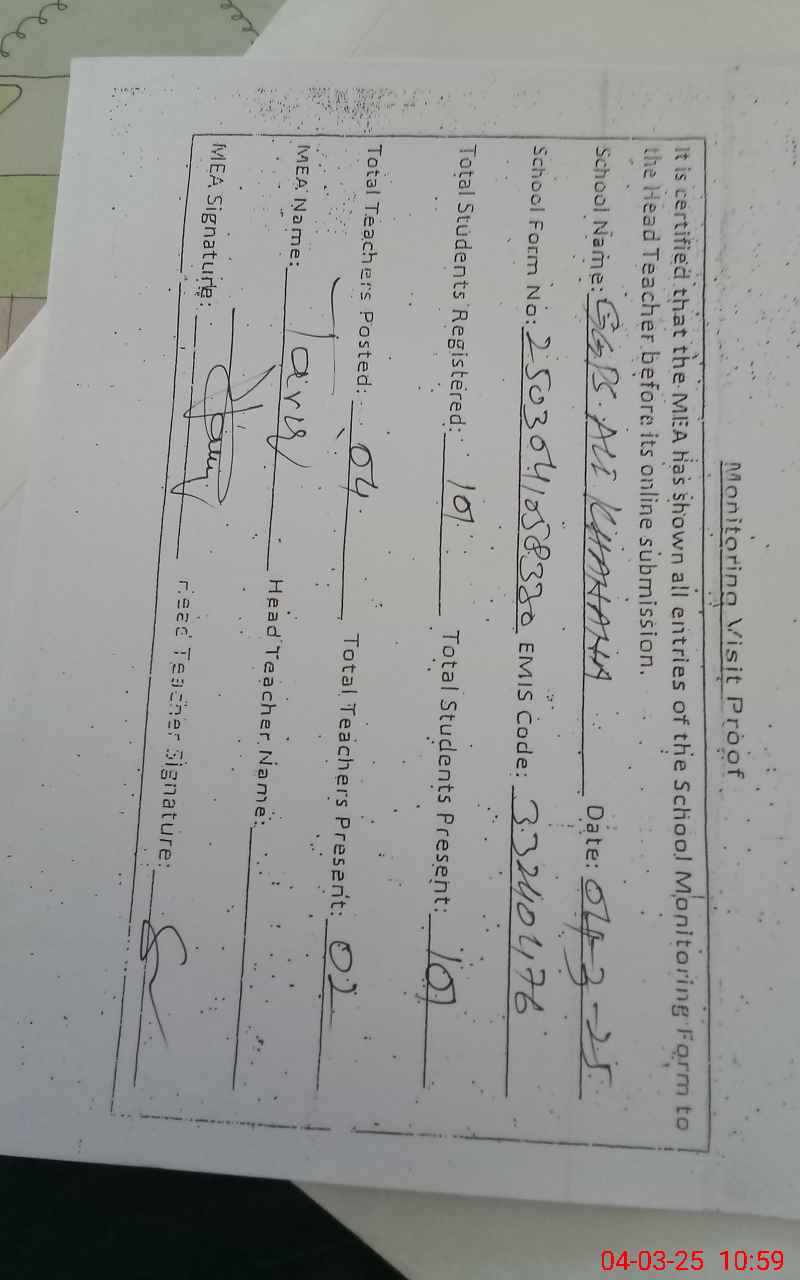 Monitoring Visit Proof
It is certified that the MEA has shown all entries of the School Monitoring Form to
the Head Teacher before its online submission.
School Name: GGPS. ALI KHANANA Date: 04-3-25
School Form No: EMIS Code: 33240476
Total Students Registered: 101 Total Students Present: 101
Total Teachers Posted: 04 Total Teachers Present: 02
MEA Name: Head Teacher Name:
MEA Signature: Head Teacher Signature:
04-03-25 10:59